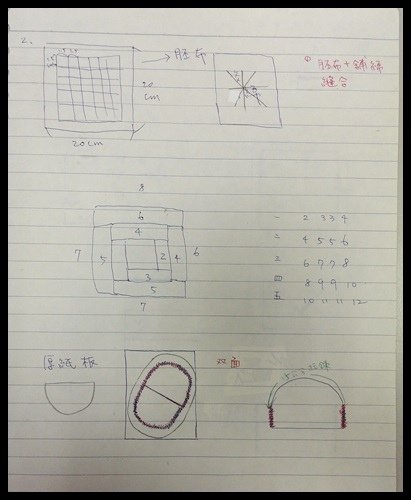 2、
1.5 1.5
1.5
胚布
20 cm
20cm
① 胚布+鋪綿
縫合
8
6
4
7 5 2 4 6
3
5
7
一 2 3 3 4
二 4 5 5 6
三 6 7 7 8
四 8 9 9 10
五 10 11 11 12
厚紙板
双面
拉鍊